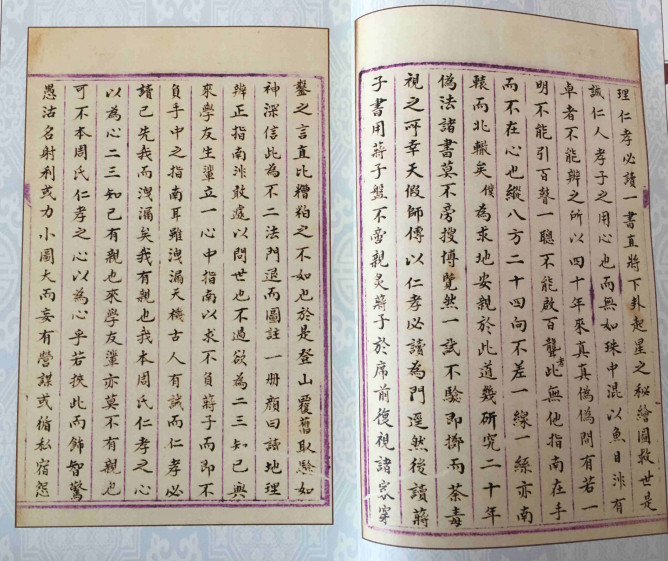 理仁孝必讀一書直將下卦起星之秘繪圖救世是
誠仁人孝子之用心也而無如珠中混以魚目非有
卓者不能辨之所以四十年來真真偽偽問有若一
明不能引百瞽一聰不能啟百聾者此無他指南在手
而不在心也縱八方二十四向不差一線一絲亦南
轅而北轍矣僕為求地安親於此道幾研究二十年
偽法諸書莫不旁搜博覽然一試不驗即擲而荼毒
視之所幸天假師傳以仁孝必讀為門逕然後讀蔣
子書用蔣子盤不啻親炙蔣子於席前復視諸家穿
鑿之言直比糟粕之不如也於是登山覆舊取驗如
神深信此為不二法門退而圖註一冊顏曰讀地理
辨正指南非敢遽以問世也不過欲為二三知己與
來學友生輩立一心中指南以求不負蔣子而即不
負手中之指南耳雖洩漏天機古人有誡而仁孝必
讀已先我而洩漏矣我有親也我本周氏仁孝之心
以為心二三知己有親也來學友輩亦莫不有親也
可不本周氏仁孝之心以為心乎若挾此而飾智驚
愚沽名射利或力小圖大而妄有營謀或循私宿怨